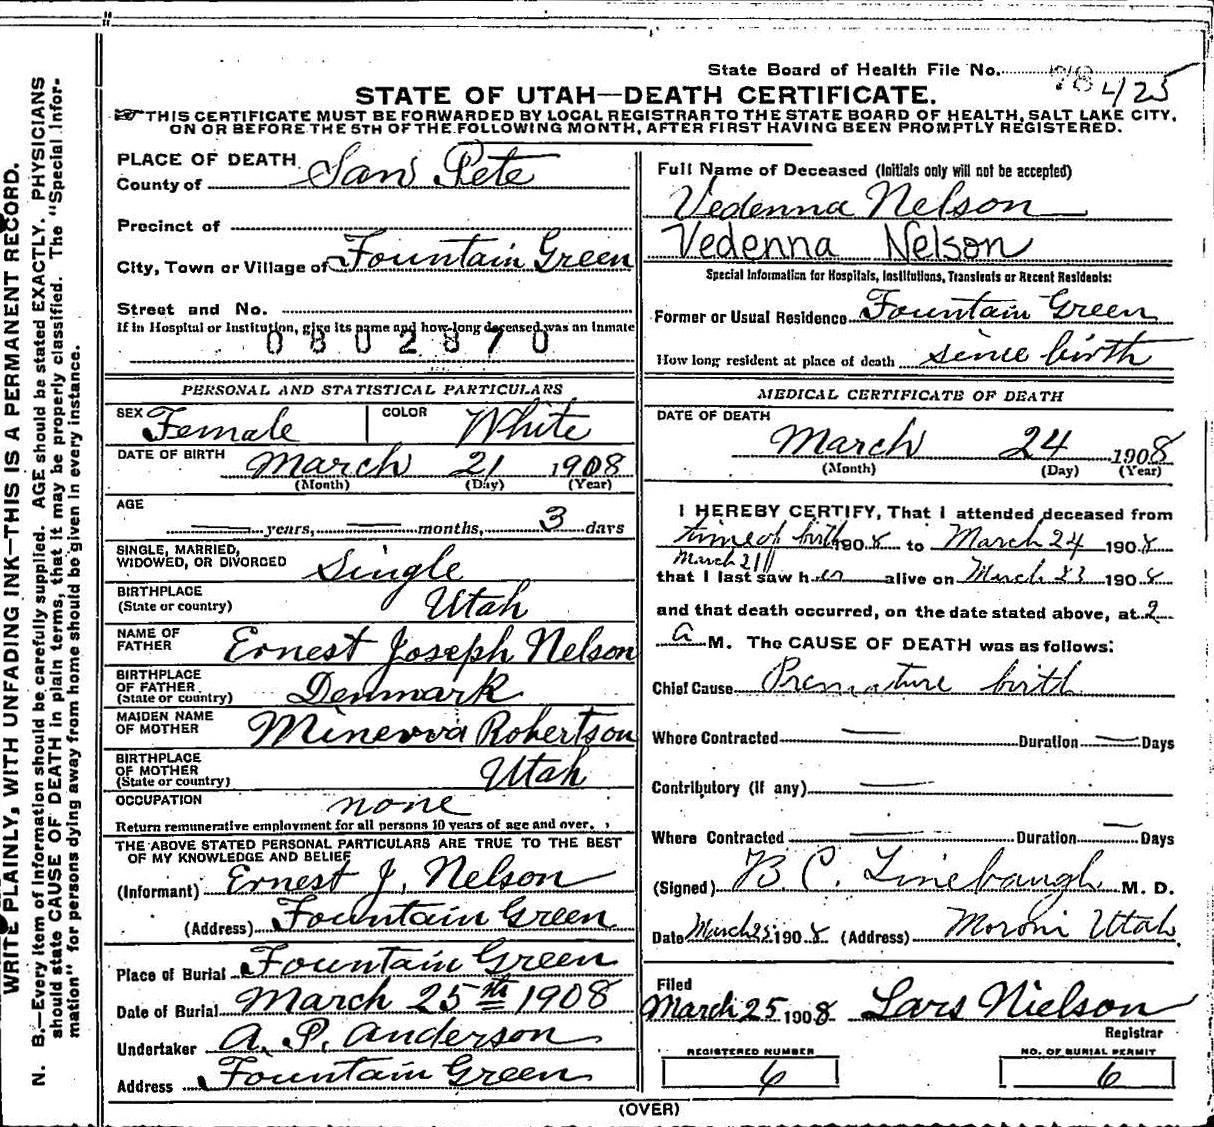 State Board of Health File No. 78 425
STATE OF UTAH—DEATH CERTIFICATE.
THIS CERTIFICATE MUST BE FORWARDED BY LOCAL REGISTRAR TO THE STATE BOARD OF HEALTH, SALT LAKE CITY,
ON OR BEFORE THE 5TH OF THE FOLLOWING MONTH, AFTER FIRST HAVING BEEN PROMPTLY REGISTERED.
WRITE PLAINLY, WITH UNFADING INK—THIS IS A PERMANENT RECORD.
N. B.—Every item of information should be carefully supplied. AGE should be stated EXACTLY. PHYSICIANS
should state CAUSE OF DEATH in plain terms, that it may be properly classified. The "Special Infor-
mation" for persons dying away from home should be given in every instance.
PLACE OF DEATH
County of San Pete
Precinct of
City, Town or Village of Fountain Green
Street and No.
If in Hospital or Institution, give its name and how long deceased was an Inmate
0802870
PERSONAL AND STATISTICAL PARTICULARS
SEX Female COLOR White
DATE OF BIRTH March 21 1908
(Month) (Day) (Year)
AGE
— years, — months, 3 days
SINGLE, MARRIED,
WIDOWED, OR DIVORCED Single
BIRTHPLACE
(State or country) Utah
NAME OF
FATHER Ernest Joseph Nelson
BIRTHPLACE
OF FATHER
(State or country) Denmark
MAIDEN NAME
OF MOTHER Minerva Robertson
BIRTHPLACE
OF MOTHER
(State or country) Utah
OCCUPATION none
Return remunerative employment for all persons 10 years of age and over.
THE ABOVE STATED PERSONAL PARTICULARS ARE TRUE TO THE BEST
OF MY KNOWLEDGE AND BELIEF
(Informant) Ernest J. Nelson
(Address) Fountain Green
Place of Burial Fountain Green
Date of Burial March 25th 1908
Undertaker A. P. Anderson
Address Fountain Green
Full Name of Deceased (Initials only will not be accepted)
Vedenna Nelson
Vedenna Nelson
Special Information for Hospitals, Institutions, Transients or Recent Residents:
Former or Usual Residence Fountain Green
How long resident at place of death since birth
MEDICAL CERTIFICATE OF DEATH
DATE OF DEATH
March 24 1908
(Month) (Day) (Year)
I HEREBY CERTIFY, That I attended deceased from
time of birth 1908 to March 24 1908
March 21
that I last saw her alive on March 23 1908
and that death occurred, on the date stated above, at 2
a M. The CAUSE OF DEATH was as follows:
Chief Cause Premature birth
Where Contracted — Duration — Days
Contributory (If any) —
Where Contracted — Duration — Days
(Signed) B C. Linebaugh M. D.
Date March 25 1908 (Address) Moroni Utah
Filed
March 25 1908 Lars Nielson
Registrar
REGISTERED NUMBER
6
NO. OF BURIAL PERMIT
6
(OVER)